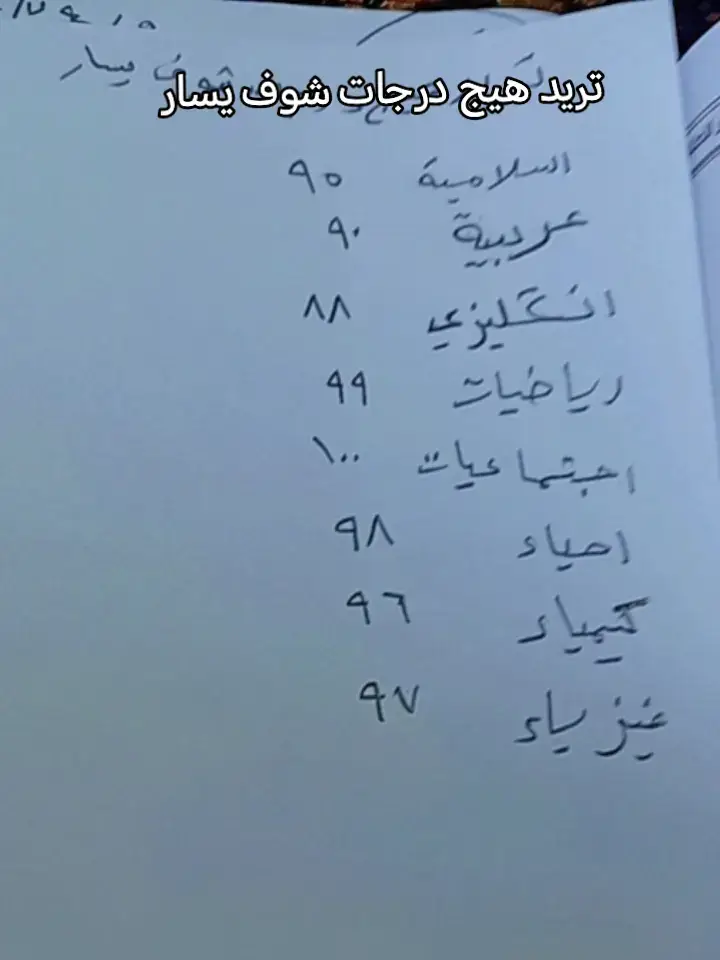 تريد هيج درجات شوف يسار
شوف يسار
السلامية ٩٥
عربية ٩٠
انكليزي ٨٨
رياضيات ٩٩
اجتماعيات ١٠٠
احياء ٩٨
كيمياء ٩٦
فيزياء ٩٧